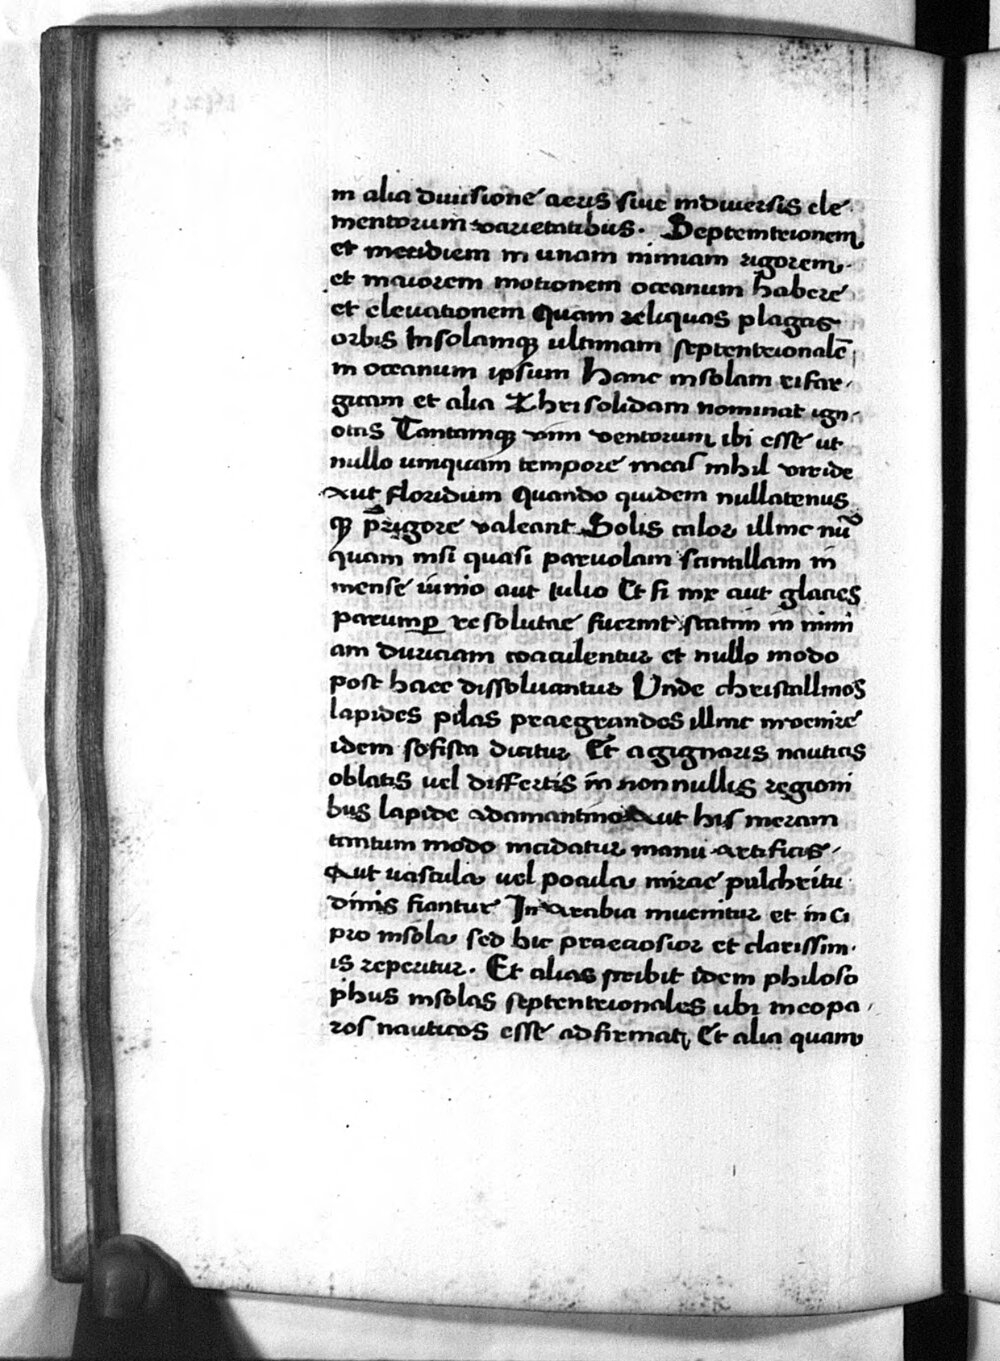 in alia diuisione aeris siue indiuersis ele
mentorum varietatibus. Septemtrionem
et meridiem in unam nimiam rigorem
et maiorem motionem oceanum habere
et eleuationem Quam reliquas plagas
orbis Insolamqꝫ ultimam septentrionalē
in oceanum ipsum Hanc insolam rifar
gicam et alia Chrisolidam nominat ign
otas Tantamqꝫ vim ventorum ibi esse ut
nullo umquam tempore in eas nihil viride
Aut floridum Quando quidem nullatenus
qꝫ p̄ rigore valeant Solis calor illinc nū
quam nisi quasi paruolam scintillam in
mense iunio aut iulio Et si nix aut glacies
parump̱ resolutae fuerint statim in nimi
am duriciam coaculentur et nullo modo
post haec dissoluantur Unde christallinos
lapides pilas praegrandes illinc inuenire
idem sofista dicitur Et agignaris nauticis
oblatis uel differtis in non nullis regioni
bus lapide adamantino Aut his meram
tantum modo incidatur manu artificis
Aut uascula uel pocula mirae pulchritu
dinis fiantur In Arabia inuenitur et in ci
pro insola sed hic praeciosior et clarissim
is reperitur. Et alias scribit idem philoso
phus insolas septentrionales ubi meopa
ros nauticos esse adfirmat Et alia quam